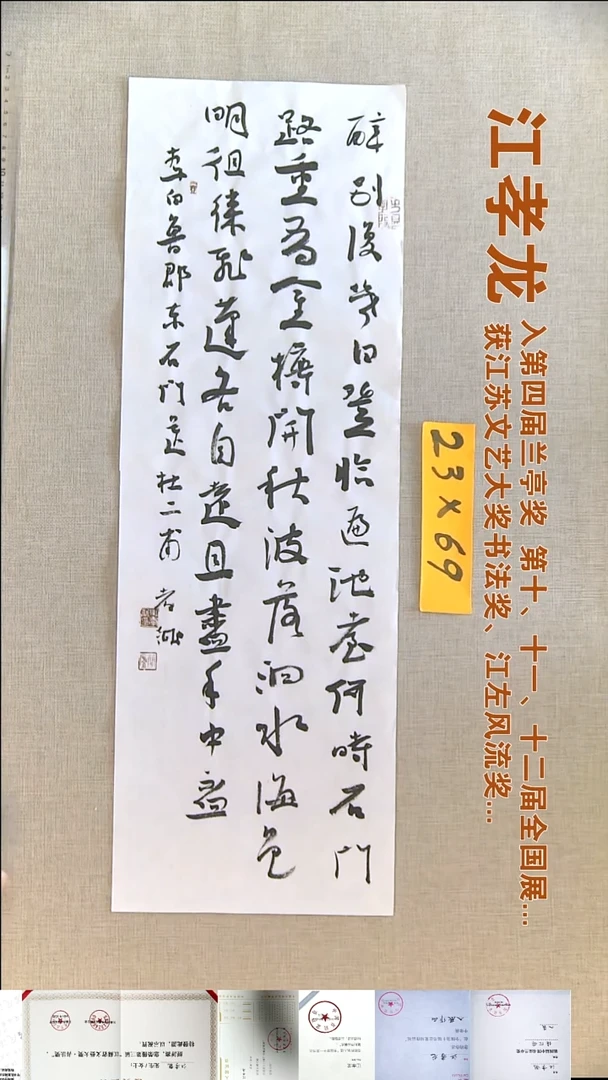 江孝龙
入第四届兰亭奖 第十、十一、十二届全国展...
获江苏文艺大奖书法奖、江左风流奖...
23×69
醉別復幾日登臨遍池臺何時石門
路重有金樽開秋波落泗水海色
明徂徠飛蓬各自遠且盡手中盃
李白魯郡東石門送杜二甫 孝龍